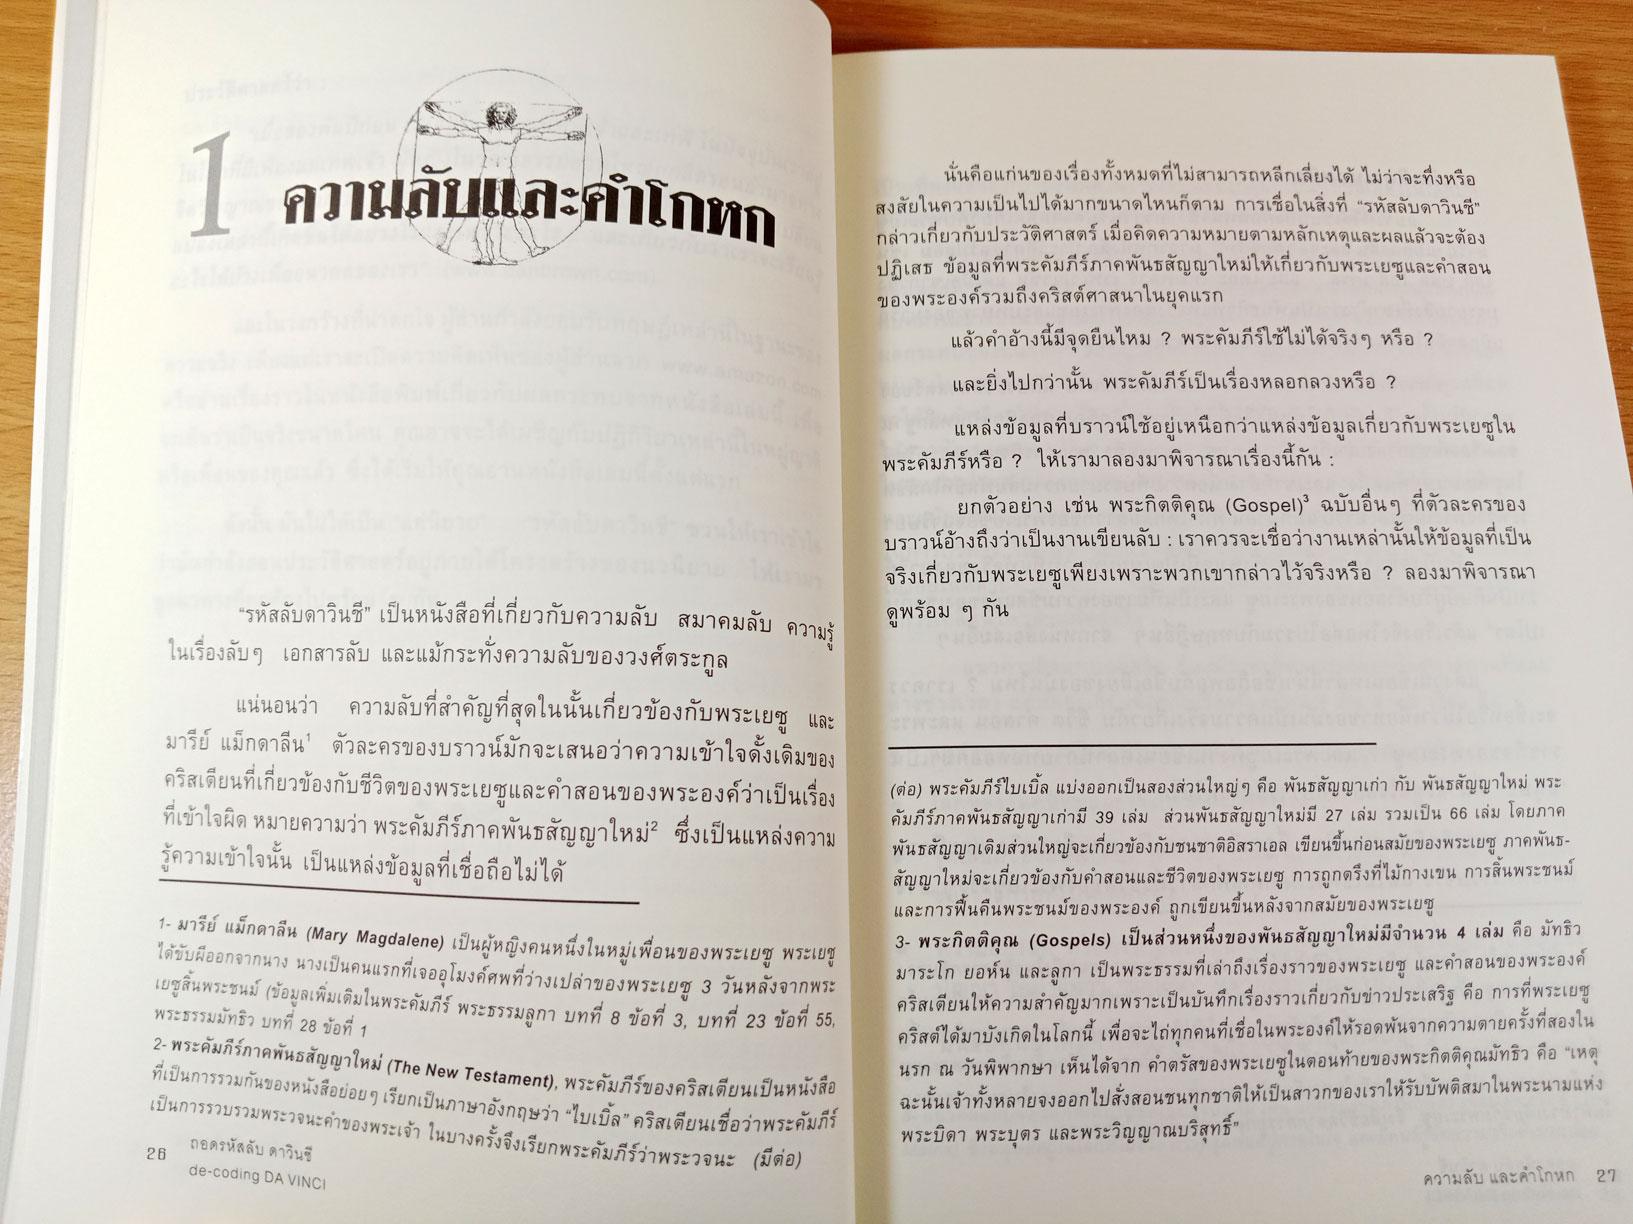 1
ความลับและคำโกหก
“รหัสลับดาวินชี” เป็นหนังสือที่เกี่ยวกับความลับ สมาคมลับ ความรู้
ในเรื่องลับๆ เอกสารลับ และแม้กระทั่งความลับของวงศ์ตระกูล
แน่นอนว่า ความลับที่สำคัญที่สุดในนั้นเกี่ยวข้องกับพระเยซู และ
มารีย์ แม็กดาลีน¹ ตัวละครของบราวน์มักจะเสนอว่าความเข้าใจดั้งเดิมของ
คริสเตียนที่เกี่ยวข้องกับชีวิตของพระเยซูและคำสอนของพระองค์ว่าเป็นเรื่อง
ที่เข้าใจผิด หมายความว่า พระคัมภีร์ภาคพันธสัญญาใหม่² ซึ่งเป็นแหล่งความ
รู้ความเข้าใจนั้น เป็นแหล่งข้อมูลที่เชื่อถือไม่ได้
1- มารีย์ แม็กดาลีน (Mary Magdalene) เป็นผู้หญิงคนหนึ่งในหมู่เพื่อนของพระเยซู พระเยซู
ได้ขับผีออกจากนาง นางเป็นคนแรกที่เจออุโมงค์ศพที่ว่างเปล่าของพระเยซู 3 วันหลังจากพระ
เยซูสิ้นพระชนม์ (ข้อมูลเพิ่มเติมในพระคัมภีร์ พระธรรมลูกา บทที่ 8 ข้อที่ 3, บทที่ 23 ข้อที่ 55,
พระธรรมมัทธิว บทที่ 28 ข้อที่ 1
2- พระคัมภีร์ภาคพันธสัญญาใหม่ (The New Testament), พระคัมภีร์ของคริสเตียนเป็นหนังสือ
ที่เป็นการรวมกันของหนังสือย่อยๆ เรียกเป็นภาษาอังกฤษว่า “ไบเบิ้ล” คริสเตียนเชื่อว่าพระคัมภีร์
เป็นการรวบรวมพระวจนะคำของพระเจ้า ในบางครั้งจึงเรียกพระคัมภีร์ว่าพระวจนะ (มีต่อ)
26 ถอดรหัสลับ ดาวินชี
de-coding DA VINCI
นั่นคือแก่นของเรื่องทั้งหมดที่ไม่สามารถหลีกเลี่ยงได้ ไม่ว่าจะทึ่งหรือ
สงสัยในความเป็นไปได้มากขนาดไหนก็ตาม การเชื่อในสิ่งที่ “รหัสลับดาวินชี”
กล่าวเกี่ยวกับประวัติศาสตร์ เมื่อคิดความหมายตามหลักเหตุและผลแล้วจะต้อง
ปฏิเสธ ข้อมูลที่พระคัมภีร์ภาคพันธสัญญาใหม่ให้เกี่ยวกับพระเยซูและคำสอน
ของพระองค์รวมถึงคริสต์ศาสนาในยุคแรก
แล้วคำอ้างนี้มีจุดยืนไหม ? พระคัมภีร์ใช้ไม่ได้จริงๆ หรือ ?
และยิ่งไปกว่านั้น พระคัมภีร์เป็นเรื่องหลอกลวงหรือ ?
แหล่งข้อมูลที่บราวน์ใช้อยู่เหนือกว่าแหล่งข้อมูลเกี่ยวกับพระเยซูใน
พระคัมภีร์หรือ ? ให้เรามาลองมาพิจารณาเรื่องนี้กัน :
ยกตัวอย่าง เช่น พระกิตติคุณ (Gospel)³ ฉบับอื่นๆ ที่ตัวละครของ
บราวน์อ้างถึงว่าเป็นงานเขียนลับ : เราควรจะเชื่อว่างานเหล่านั้นให้ข้อมูลที่เป็น
จริงเกี่ยวกับพระเยซูเพียงเพราะพวกเขากล่าวไว้จริงหรือ ? ลองมาพิจารณา
ดูพร้อม ๆ กัน
(ต่อ) พระคัมภีร์ไบเบิ้ล แบ่งออกเป็นสองส่วนใหญ่ๆ คือ พันธสัญญาเก่า กับ พันธสัญญาใหม่ พระ
คัมภีร์ภาคพันธสัญญาเก่ามี 39 เล่ม ส่วนพันธสัญญาใหม่มี 27 เล่ม รวมเป็น 66 เล่ม โดยภาค
พันธสัญญาเดิมส่วนใหญ่จะเกี่ยวข้องกับชนชาติอิสราเอล เขียนขึ้นก่อนสมัยของพระเยซู ภาคพันธ-
สัญญาใหม่จะเกี่ยวข้องกับคำสอนและชีวิตของพระเยซู การถูกตรึงที่ไม้กางเขน การสิ้นพระชนม์
และการฟื้นคืนพระชนม์ของพระองค์ ถูกเขียนขึ้นหลังจากสมัยของพระเยซู
3- พระกิตติคุณ (Gospels) เป็นส่วนหนึ่งของพันธสัญญาใหม่มีจำนวน 4 เล่ม คือ มัทธิว
มาระโก ยอห์น และลูกา เป็นพระธรรมที่เล่าถึงเรื่องราวของพระเยซู และคำสอนของพระองค์
คริสเตียนให้ความสำคัญมากเพราะเป็นบันทึกเรื่องราวเกี่ยวกับข่าวประเสริฐ คือ การที่พระเยซู
คริสต์ได้มาบังเกิดในโลกนี้ เพื่อจะไถ่ทุกคนที่เชื่อในพระองค์ให้รอดพ้นจากความตายครั้งที่สองใน
นรก ณ วันพิพากษา เห็นได้จาก คำตรัสของพระเยซูในตอนท้ายของพระกิตติคุณมัทธิว คือ “เหตุ
ฉะนั้นเจ้าทั้งหลายจงออกไปสั่งสอนชนทุกชาติให้เป็นสาวกของเราให้รับบัพติสมาในพระนามแห่ง
พระบิดา พระบุตร และพระวิญญาณบริสุทธิ์”
ความลับ และคำโกหก 27